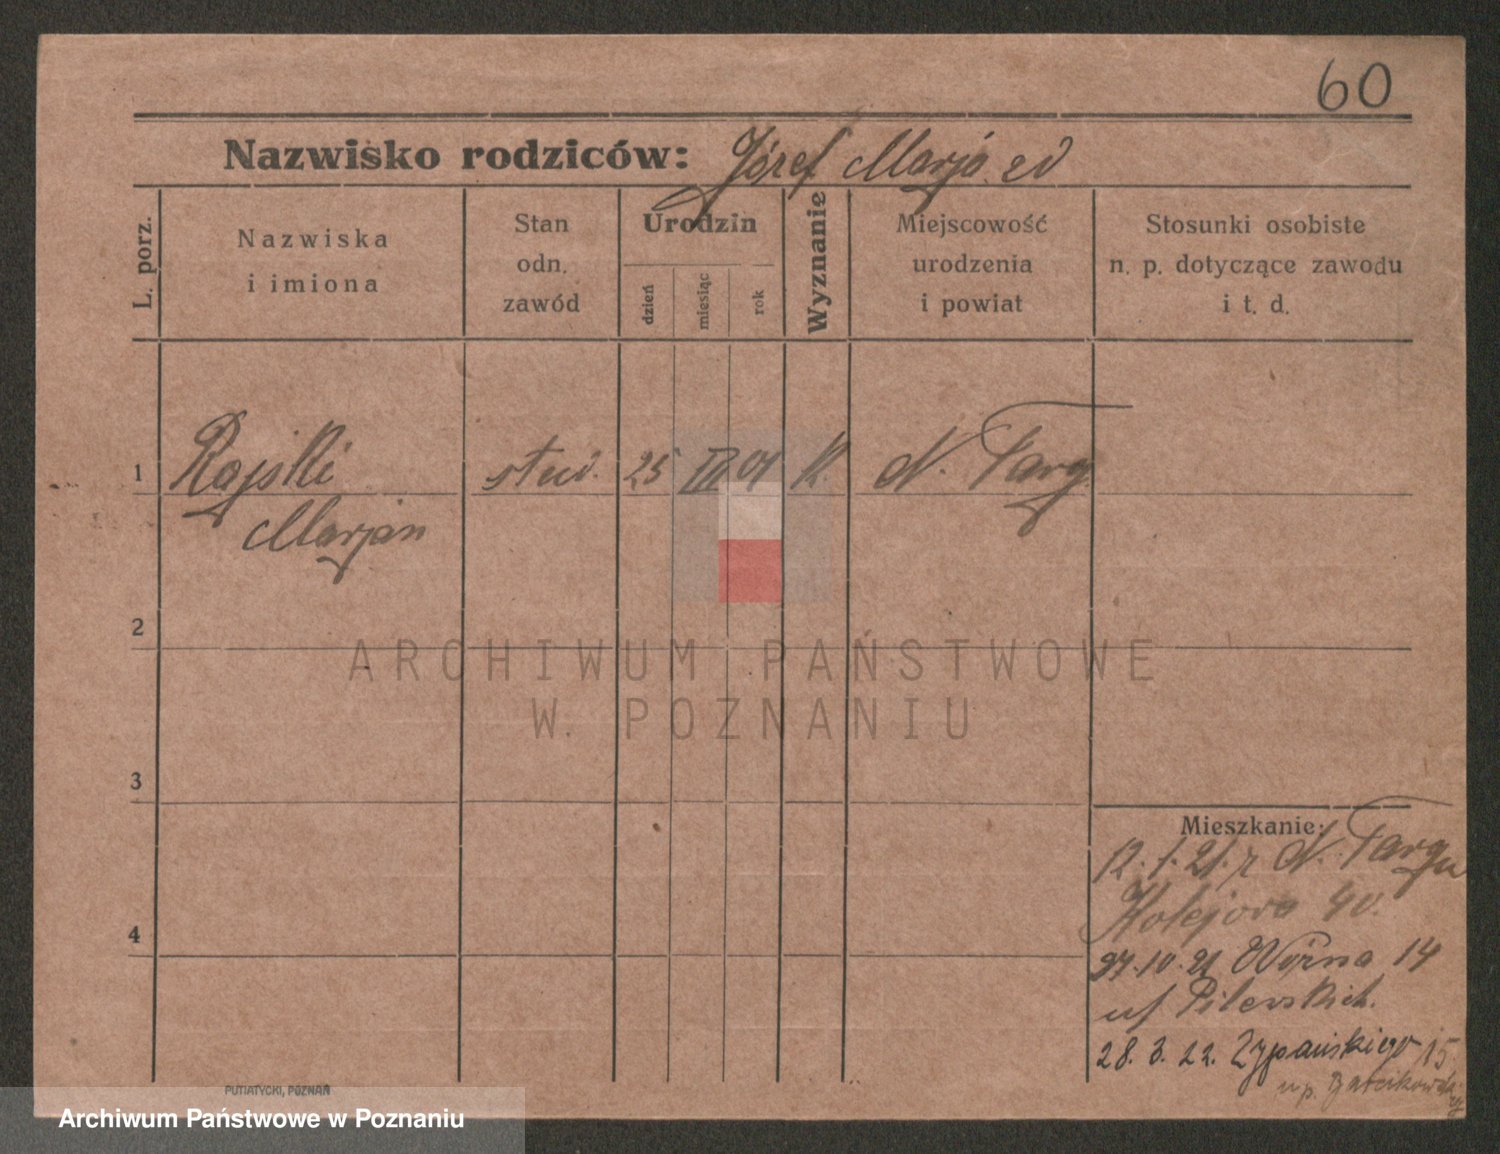 60
Nazwisko rodziców: Józef Marja
L. porz.
Nazwiska
i imiona
Stan
odn.
zawód
Urodzin
dzień
miesiąc
rok
Wyznanie
Miejscowość
urodzenia
i powiat
Stosunki osobiste
n. p. dotyczące zawodu
i t. d.
1 Rajski stud. 25 III 01 K. N. Targ
Marjan
2
ARCHIWUM PAŃSTWOWE
W POZNANIU
3
4
Mieszkanie:
12.1.21. z N. Targu
Kolejowa 40.
27.10.21 Woźna 14
28.3.22. 15
PUTIATYCKI, POZNAŃ
Archiwum Państwowe w Poznaniu